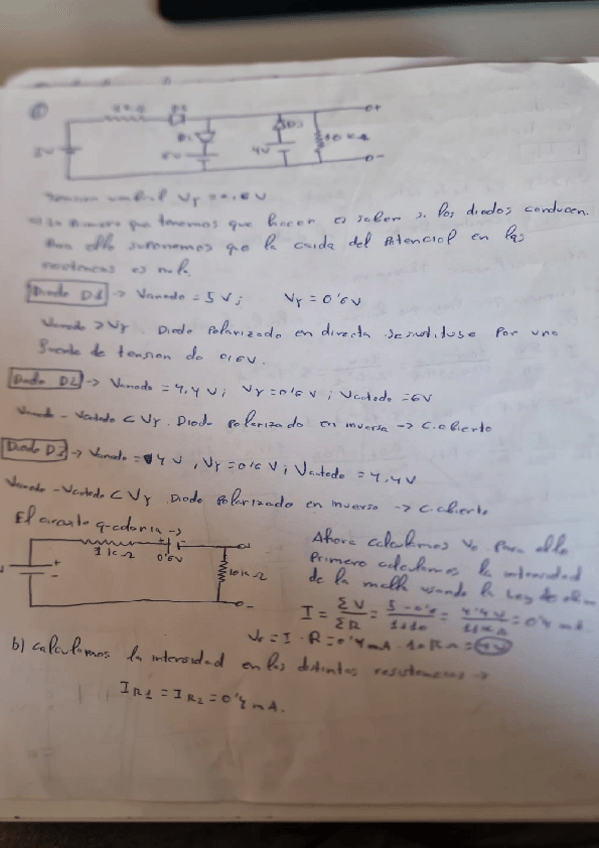 ①
D3
10 kΩ
4V
Tension umbral Vγ = 0.6V
Lo primero que tenemos que hacer es saber si los diodos conducen.
Para ello suponemos que la caida del Potencial en las
resistencias es nula.
Diodo D1 -> Vanodo = 5V; Vγ = 0'6V
Vanodo > Vγ. Diodo Polarizado en directa se sustituye por una
fuente de tension de 0,6V.
Diodo D2 -> Vanodo = 4,4V; Vγ = 0'6V; Vcatodo = 6V
Vanodo - Vcatodo < Vγ. Diodo polarizado en inversa -> C. abierto
Diodo D3 -> Vanodo = 4V, Vγ = 0'6V; Vcatodo = 4,4V
Vanodo - Vcatodo < Vγ Diodo Polarizado en inverso -> C. abierto
El circuito quedaria ->
1kΩ
0'6V
10kΩ
Ahora calculamos Vo Para ello
Primero calculamos la intensidad
de la malla usando la Ley de ohm
I = ΣV/ΣR = 5-0'6/1+10 = 4'4V/11kΩ = 0'4 mA.
Vo = I · R = 0'4mA · 10kΩ = 4V
b) calculamos la intensidad en las distintas resistencias ->
IR1 = IR2 = 0'4 mA.